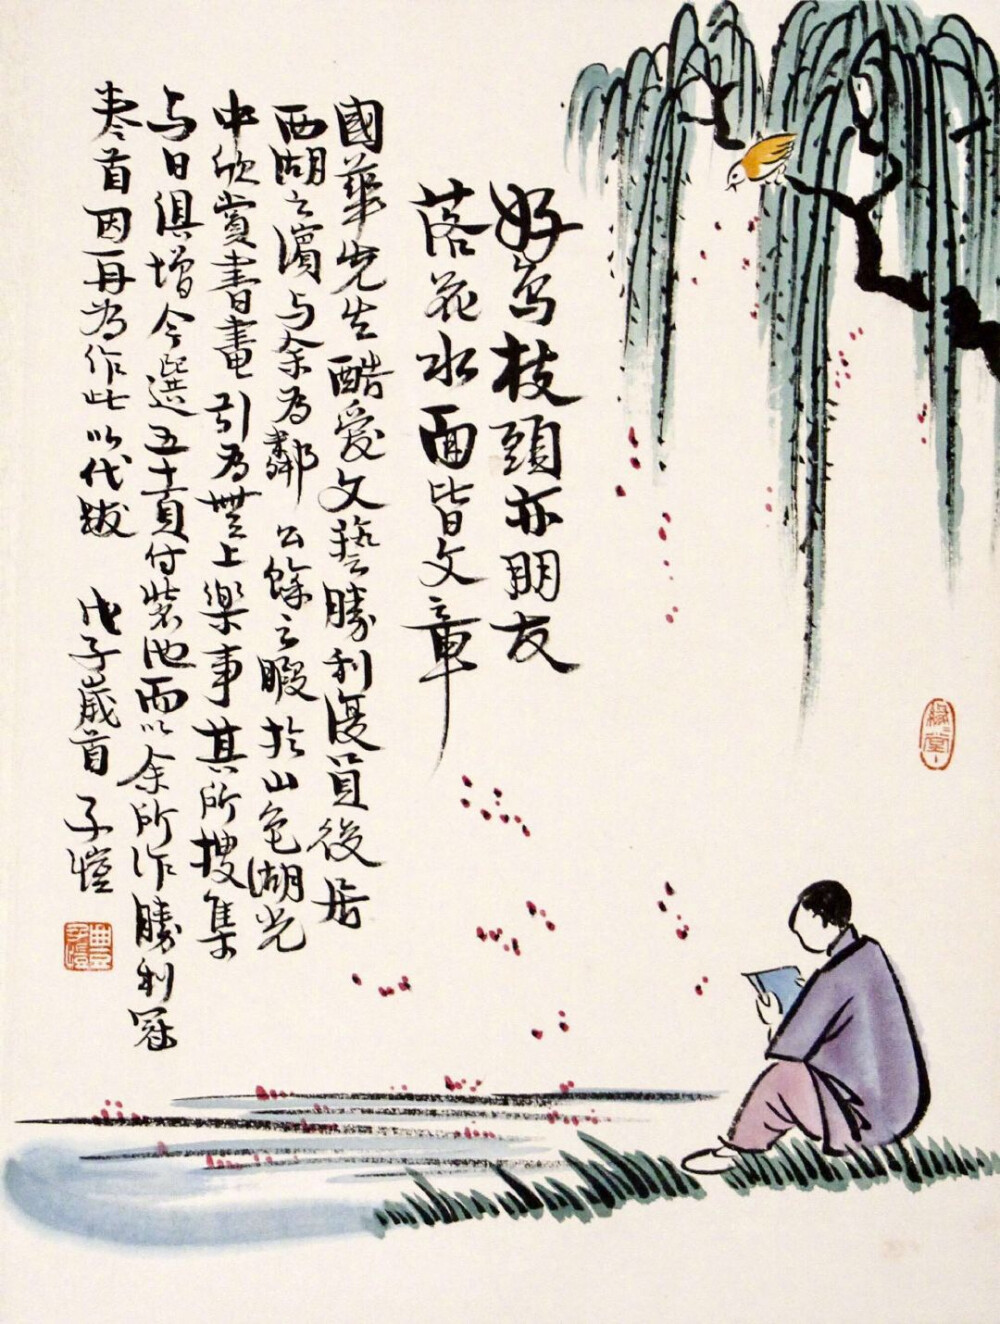 好鸟枝頭亦朋友
落花水面皆文章
國華先生酷爱文藝勝利復員後居
西湖之濵与余为鄰公餘之暇於山色湖光
中欣賞書畫引为無上樂事其所搜集
与日俱增今選五十頁付裝池而以余所作勝利冠
卷首因再为作此以代跋
戊子歲首 子愷
緣緣堂
豐子愷